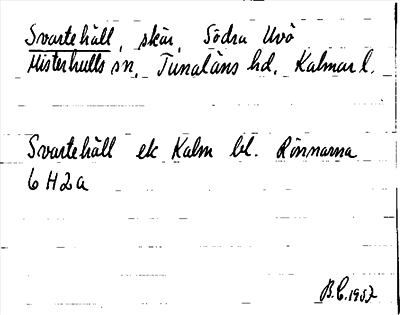 Svartehäll, skär, Södra Uvö
Misterhults sn, Tunaläns hd, Kalmar l.
Svartehäll ek Kalm bl. Rönnarna
6 H 2 a
B.C. 1957